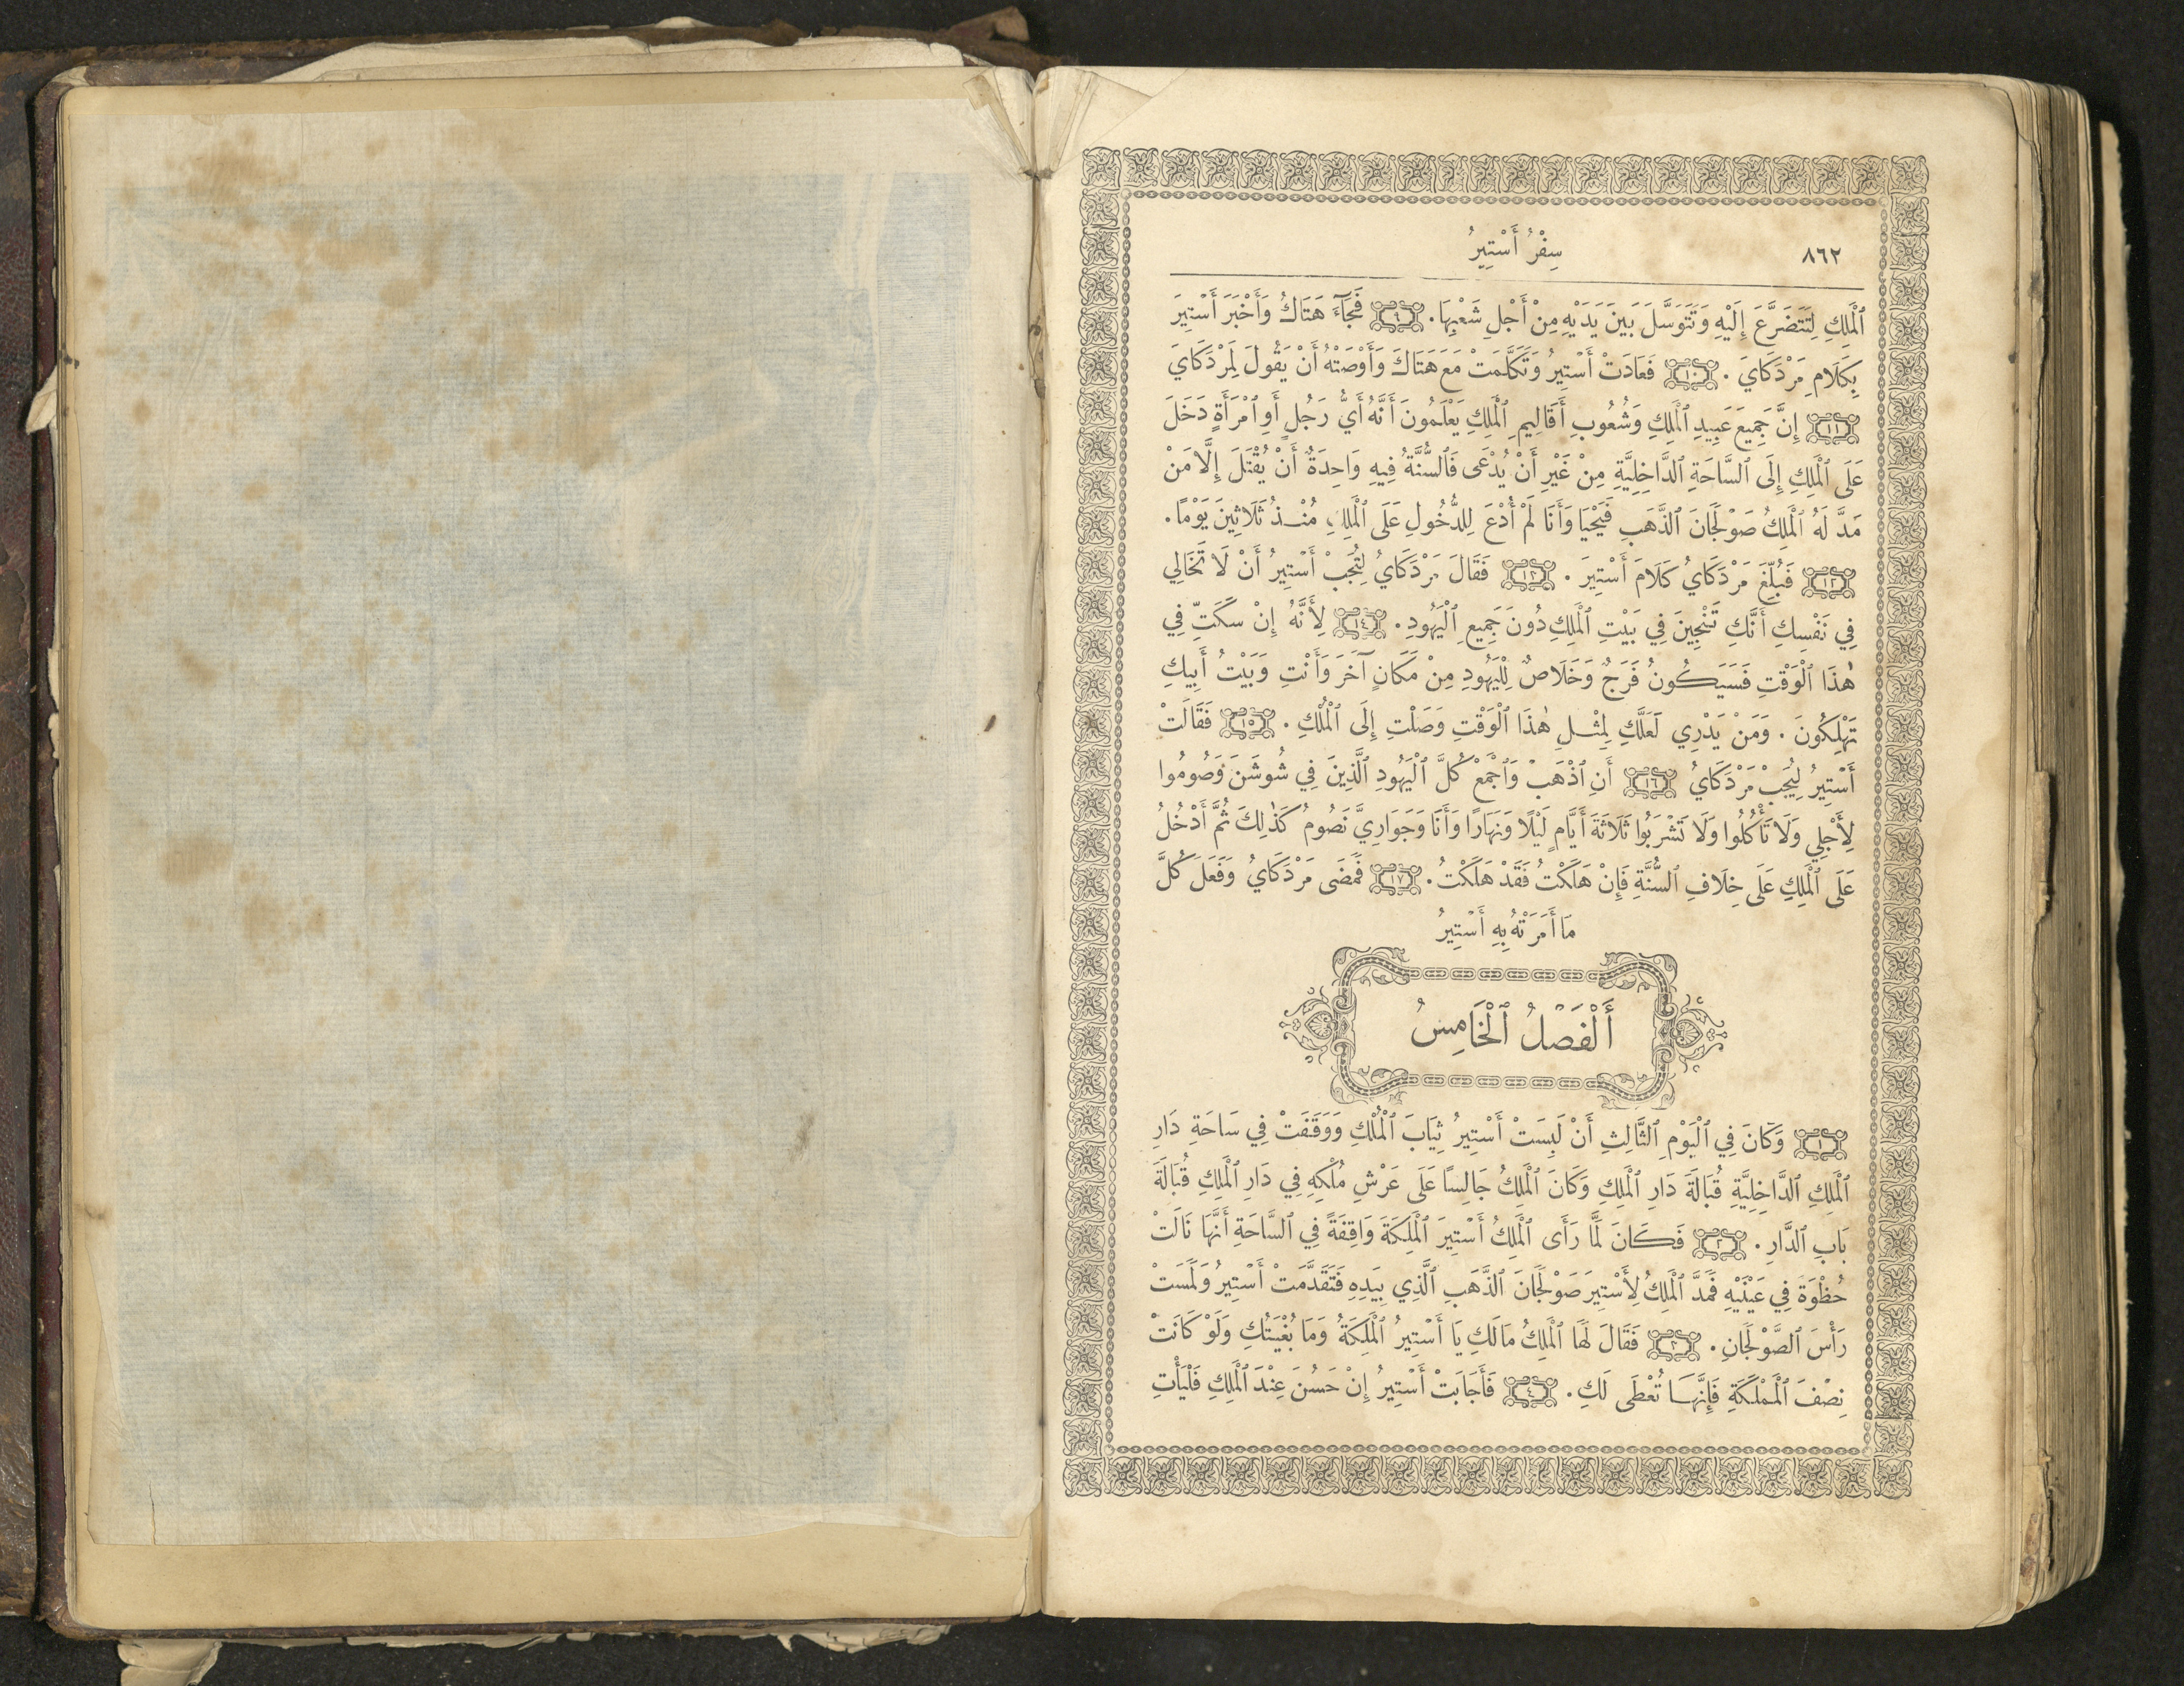 ٨٦٢
سِفْرُ أَسْتِيرُ
ٱلْمَلِكِ لِتَتَضَرَّعَ إِلَيْهِ وَتَتَوَسَّلَ بَيْنَ يَدَيْهِ مِنْ أَجْلِ شَعْبِهَا. ٩ فَجَآءَ هَتَاكُ وَأَخْبَرَ أَسْتِيرَ
بِكَلَامِ مَرْدَكَايَ. ١٠ فَعَادَتْ أَسْتِيرُ وَتَكَلَّمَتْ مَعَ هَتَاكَ وَأَوْصَتْهُ أَنْ يَقُولَ لِمَرْدَكَايَ
١١ إِنَّ جَمِيعَ عَبِيدِ ٱلْمَلِكِ وَشُعُوبِ أَقَالِيمِ ٱلْمَلِكِ يَعْلَمُونَ أَنَّهُ أَيُّ رَجُلٍ أَوِ ٱمْرَأَةٍ دَخَلَ
عَلَى ٱلْمَلِكِ إِلَى ٱلسَّاحَةِ ٱلدَّاخِلِيَّةِ مِنْ غَيْرِ أَنْ يُدْعَى فَٱلسُّنَّةُ فِيهِ وَاحِدَةٌ أَنْ يُقْتَلَ إِلَّا مَنْ
مَدَّ لَهُ ٱلْمَلِكُ صَوْلَجَانَ ٱلذَّهَبِ فَيَحْيَا وَأَنَا لَمْ أُدْعَ لِلدُّخُولِ عَلَى ٱلْمَلِكِ مُنْذُ ثَلَاثِينَ يَوْمًا.
١٢ فَبُلِّغَ مَرْدَكَايُ كَلَامَ أَسْتِيرَ. ١٣ فَقَالَ مَرْدَكَايُ لِتُجَبْ أَسْتِيرُ أَنْ لَا تَخَالِي
فِي نَفْسِكِ أَنَّكِ تَنْجِينَ فِي بَيْتِ ٱلْمَلِكِ دُونَ جَمِيعِ ٱلْيَهُودِ. ١٤ لِأَنَّهُ إِنْ سَكَتِّ فِي
هٰذَا ٱلْوَقْتِ فَسَيَكُونُ فَرَجٌ وَخَلَاصٌ لِلْيَهُودِ مِنْ مَكَانٍ آخَرَ وَأَنْتِ وَبَيْتُ أَبِيكِ
تَهْلِكُونَ. وَمَنْ يَدْرِي لَعَلَّكِ لِمِثْلِ هٰذَا ٱلْوَقْتِ وَصَلْتِ إِلَى ٱلْمُلْكِ. ١٥ فَقَالَتْ
أَسْتِيرُ لِيُجَبْ مَرْدَكَايُ ١٦ أَنِ ٱذْهَبْ وَٱجْمَعْ كُلَّ ٱلْيَهُودِ ٱلَّذِينَ فِي شُوشَنَ وَصُومُوا
لِأَجْلِي وَلَا تَأْكُلُوا وَلَا تَشْرَبُوا ثَلَاثَةَ أَيَّامٍ لَيْلًا وَنَهَارًا وَأَنَا وَجَوَارِيَّ نَصُومُ كَذٰلِكَ ثُمَّ أَدْخُلُ
عَلَى ٱلْمَلِكِ عَلَى خِلَافِ ٱلسُّنَّةِ فَإِنْ هَلَكْتُ فَقَدْ هَلَكْتُ. ١٧ فَمَضَى مَرْدَكَايُ وَفَعَلَ كُلَّ
مَا أَمَرَتْهُ بِهِ أَسْتِيرُ
أَلْفَصْلُ ٱلْخَامِسُ
١ وَكَانَ فِي ٱلْيَوْمِ ٱلثَّالِثِ أَنْ لَبِسَتْ أَسْتِيرُ ثِيَابَ ٱلْمُلْكِ وَوَقَفَتْ فِي سَاحَةِ دَارِ
ٱلْمَلِكِ ٱلدَّاخِلِيَّةِ قُبَالَةَ دَارِ ٱلْمَلِكِ وَكَانَ ٱلْمَلِكُ جَالِسًا عَلَى عَرْشِ مُلْكِهِ فِي دَارِ ٱلْمَلِكِ قُبَالَةَ
بَابِ ٱلدَّارِ. ٢ فَكَانَ لَمَّا رَأَى ٱلْمَلِكُ أَسْتِيرَ ٱلْمَلِكَةَ وَاقِفَةً فِي ٱلسَّاحَةِ أَنَّهَا نَالَتْ
حُظْوَةً فِي عَيْنَيْهِ فَمَدَّ ٱلْمَلِكُ لِأَسْتِيرَ صَوْلَجَانَ ٱلذَّهَبِ ٱلَّذِي بِيَدِهِ فَتَقَدَّمَتْ أَسْتِيرُ وَلَمَسَتْ
رَأْسَ ٱلصَّوْلَجَانِ. ٣ فَقَالَ لَهَا ٱلْمَلِكُ مَا لَكِ يَا أَسْتِيرُ ٱلْمَلِكَةُ وَمَا بُغْيَتُكِ وَلَوْ كَانَتْ
نِصْفَ ٱلْمَمْلَكَةِ فَإِنَّهَا تُعْطَى لَكِ. ٤ فَأَجَابَتْ أَسْتِيرُ إِنْ حَسُنَ عِنْدَ ٱلْمَلِكِ فَلْيَأْتِ